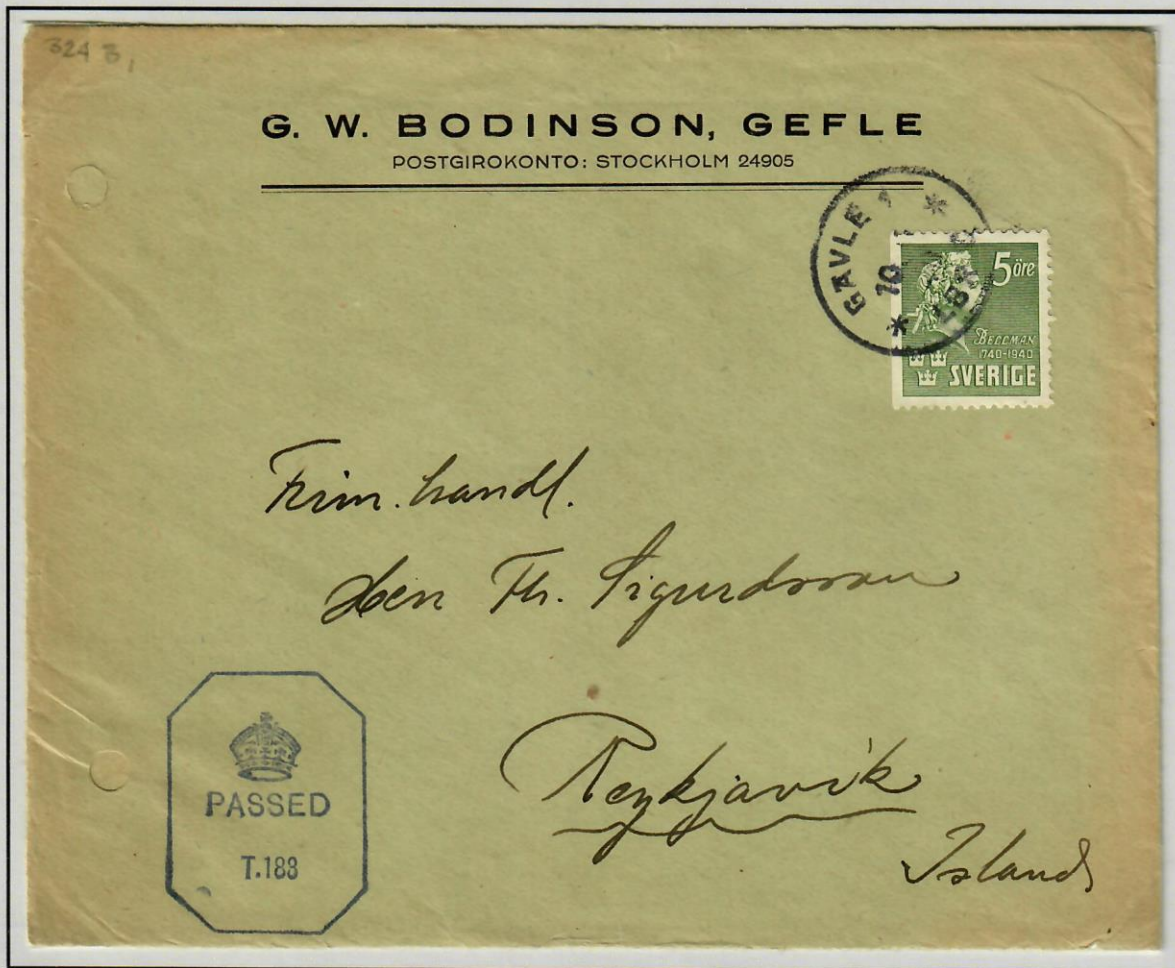 324 B,
G. W. BODINSON, GEFLE
POSTGIROKONTO: STOCKHOLM 24905
GÄVLE 1
10
5 öre
BELLMAN
1740-1940
SVERIGE
Frim. handl.
Herr Th. Sigurdsson
Reykjavik
Island
PASSED
T.183